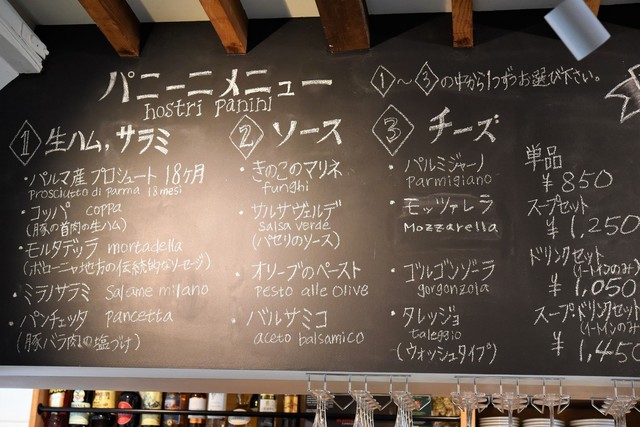 パニーニメニュー
nostri panini
①～③の中から1つずつお選び下さい。
1 生ハム,サラミ
・パルマ産プロシュート 18ヶ月
prosciutto di parma 18mesi
・コッパ coppa
(豚の首肉の生ハム)
・モルタデッラ mortadella
(ボローニャ地方の伝統的なソーセージ)
・ミラノサラミ salame milano
・パンチェッタ pancetta
(豚バラ肉の塩づけ)
2 ソース
・きのこのマリネ
funghi
・サルサヴェルデ
salsa verde
(パセリのソース)
・オリーブのペースト
pesto alle olive
・バルサミコ
aceto balsamico
3 チーズ
・パルミジャーノ
parmigiano
・モッツァレラ
Mozzarella
・ゴルゴンゾーラ
gorgonzola
・タレッジョ
taleggio
(ウォッシュタイプ)
単品
¥850
スープセット
¥1,250
ドリンクセット
(イートインのみ)
¥1,050
スープドリンクセット
(イートインのみ)
¥1,450